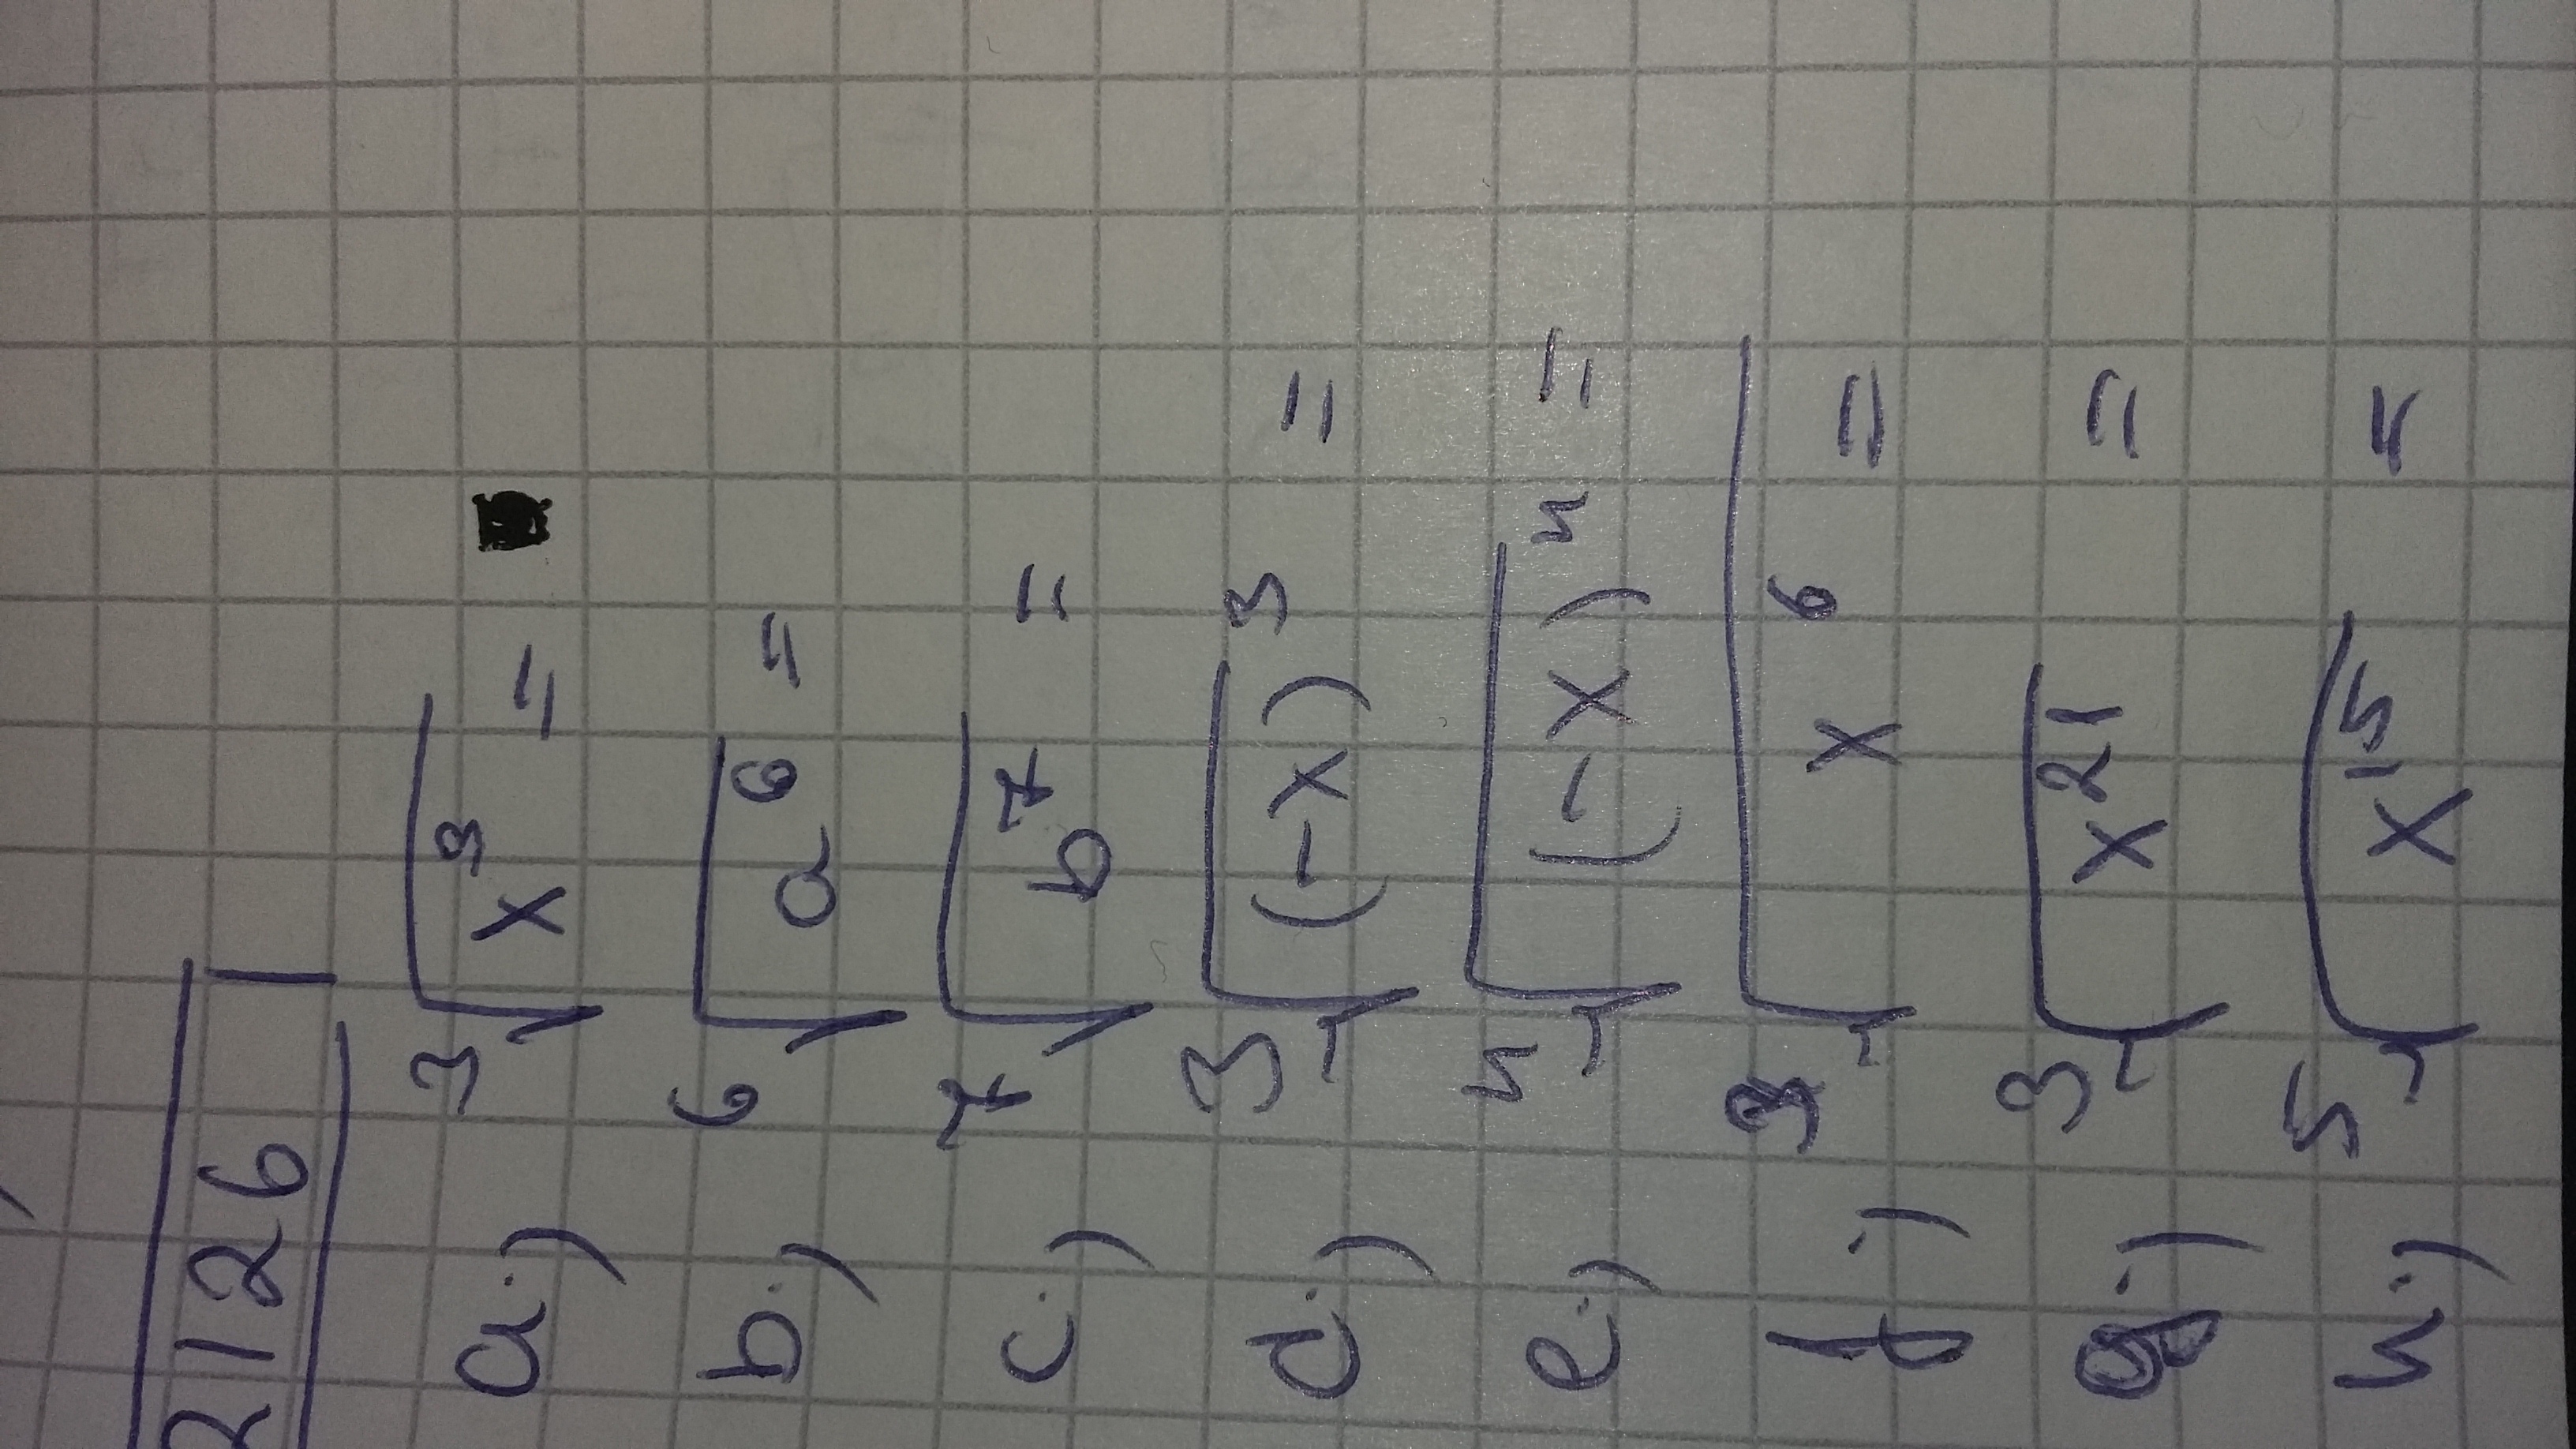 2126
a.) ³√x³ =
b.) ⁶√a⁶ =
c.) ⁷√b⁷ =
d.) ³√(-x)³ =
e.) ⁵√(-x)⁵ =
f.) √x⁶ =
g.) ³√x²¹ =
h.) ⁵√x¹⁵ =